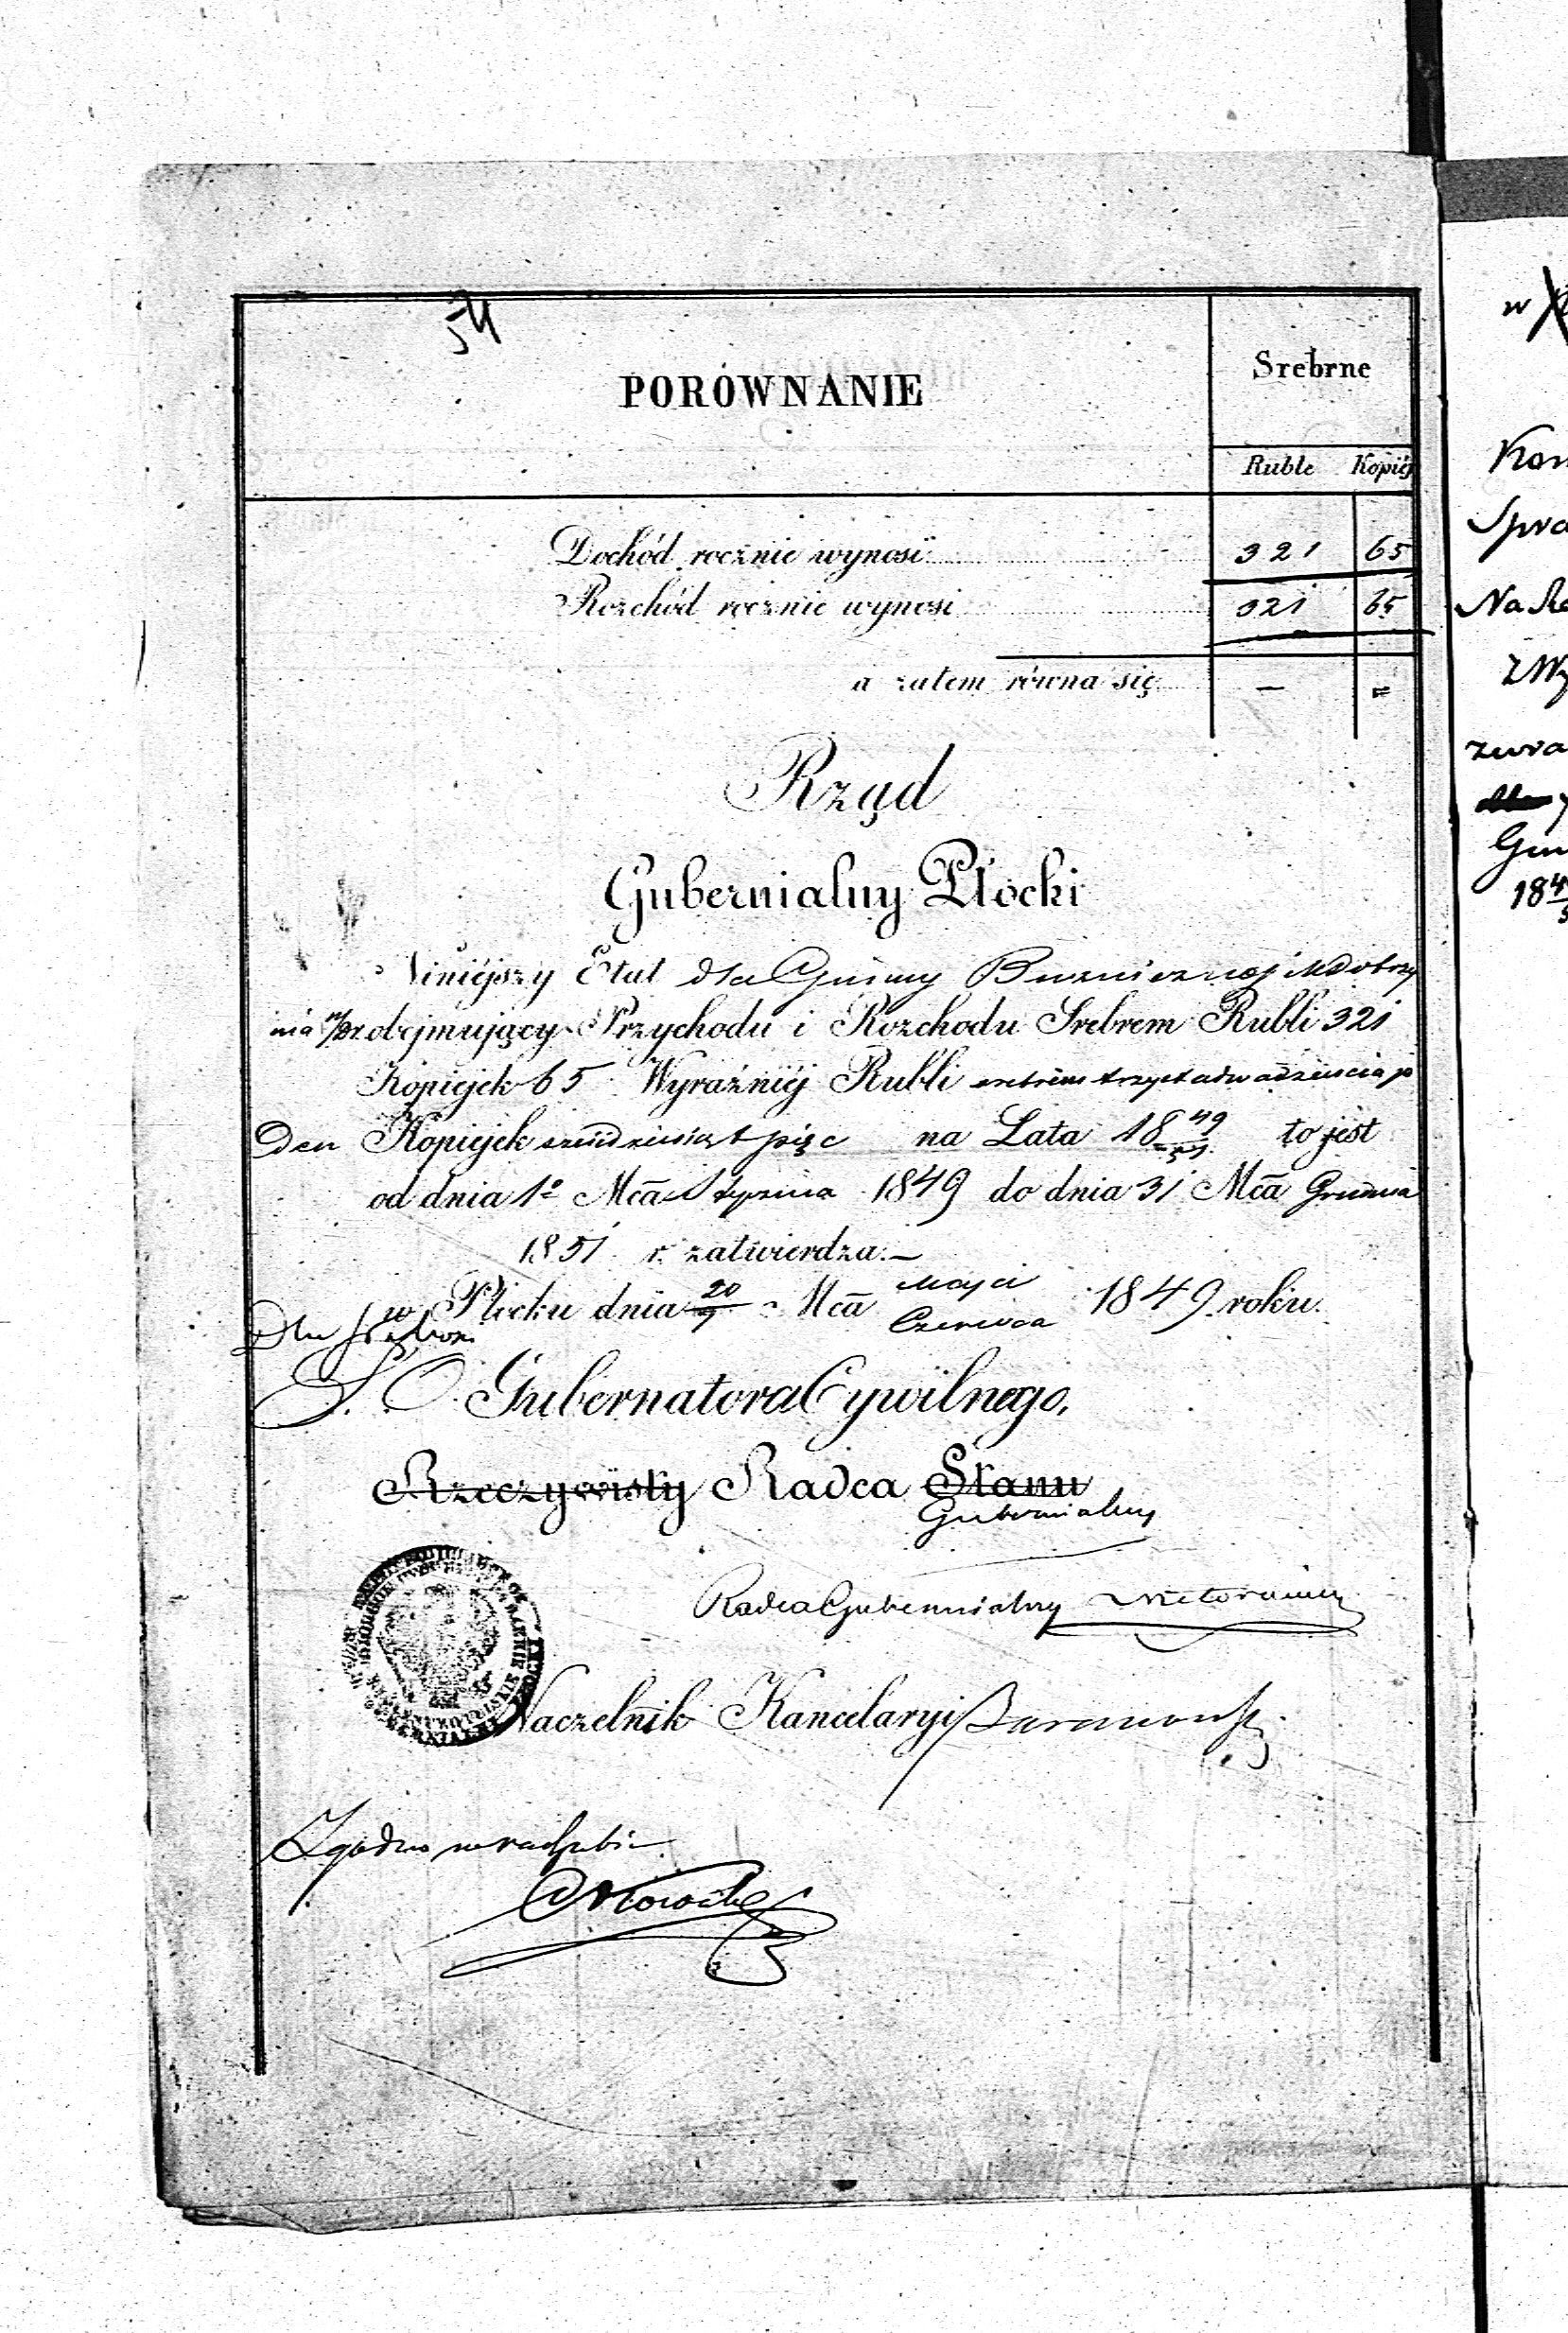 54
PORÓWNANIE
Srebrne
Ruble Kopiej
Dochód rocznie wynosi 321 65
Rozchód rocznie wynosi 321 65
a zatem równa się — =
Rząd
Gubernialny Płocki
Niniejszy Etat dla Gminy Bużnicznej M Dobrzy
nia n/W obejmujący Przychodu i Rozchodu Srebrem Rubli 321
Kopiejek 65 Wyraźniej Rubli srebrem trzysta dwadzieścia je
den Kopiejek sześćdziesiąt pięć na Lata 1849/51 to jest
od dnia 1o Mca Stycznia 1849 do dnia 31 Mca Grudnia
1851 r. zatwierdza.—
w Płocku dnia 20/1 Mca Maja/Czerwca 1849 roku.
Gubernatora Cywilnego,
Rzeczywisty Radca Stanu
Gubernialny
Radca Gubernialny
Naczelnik Kancelaryi
Zgodno w rachubie
w
Kom
Spra
Na
Z Wy
zwra
Gu
184